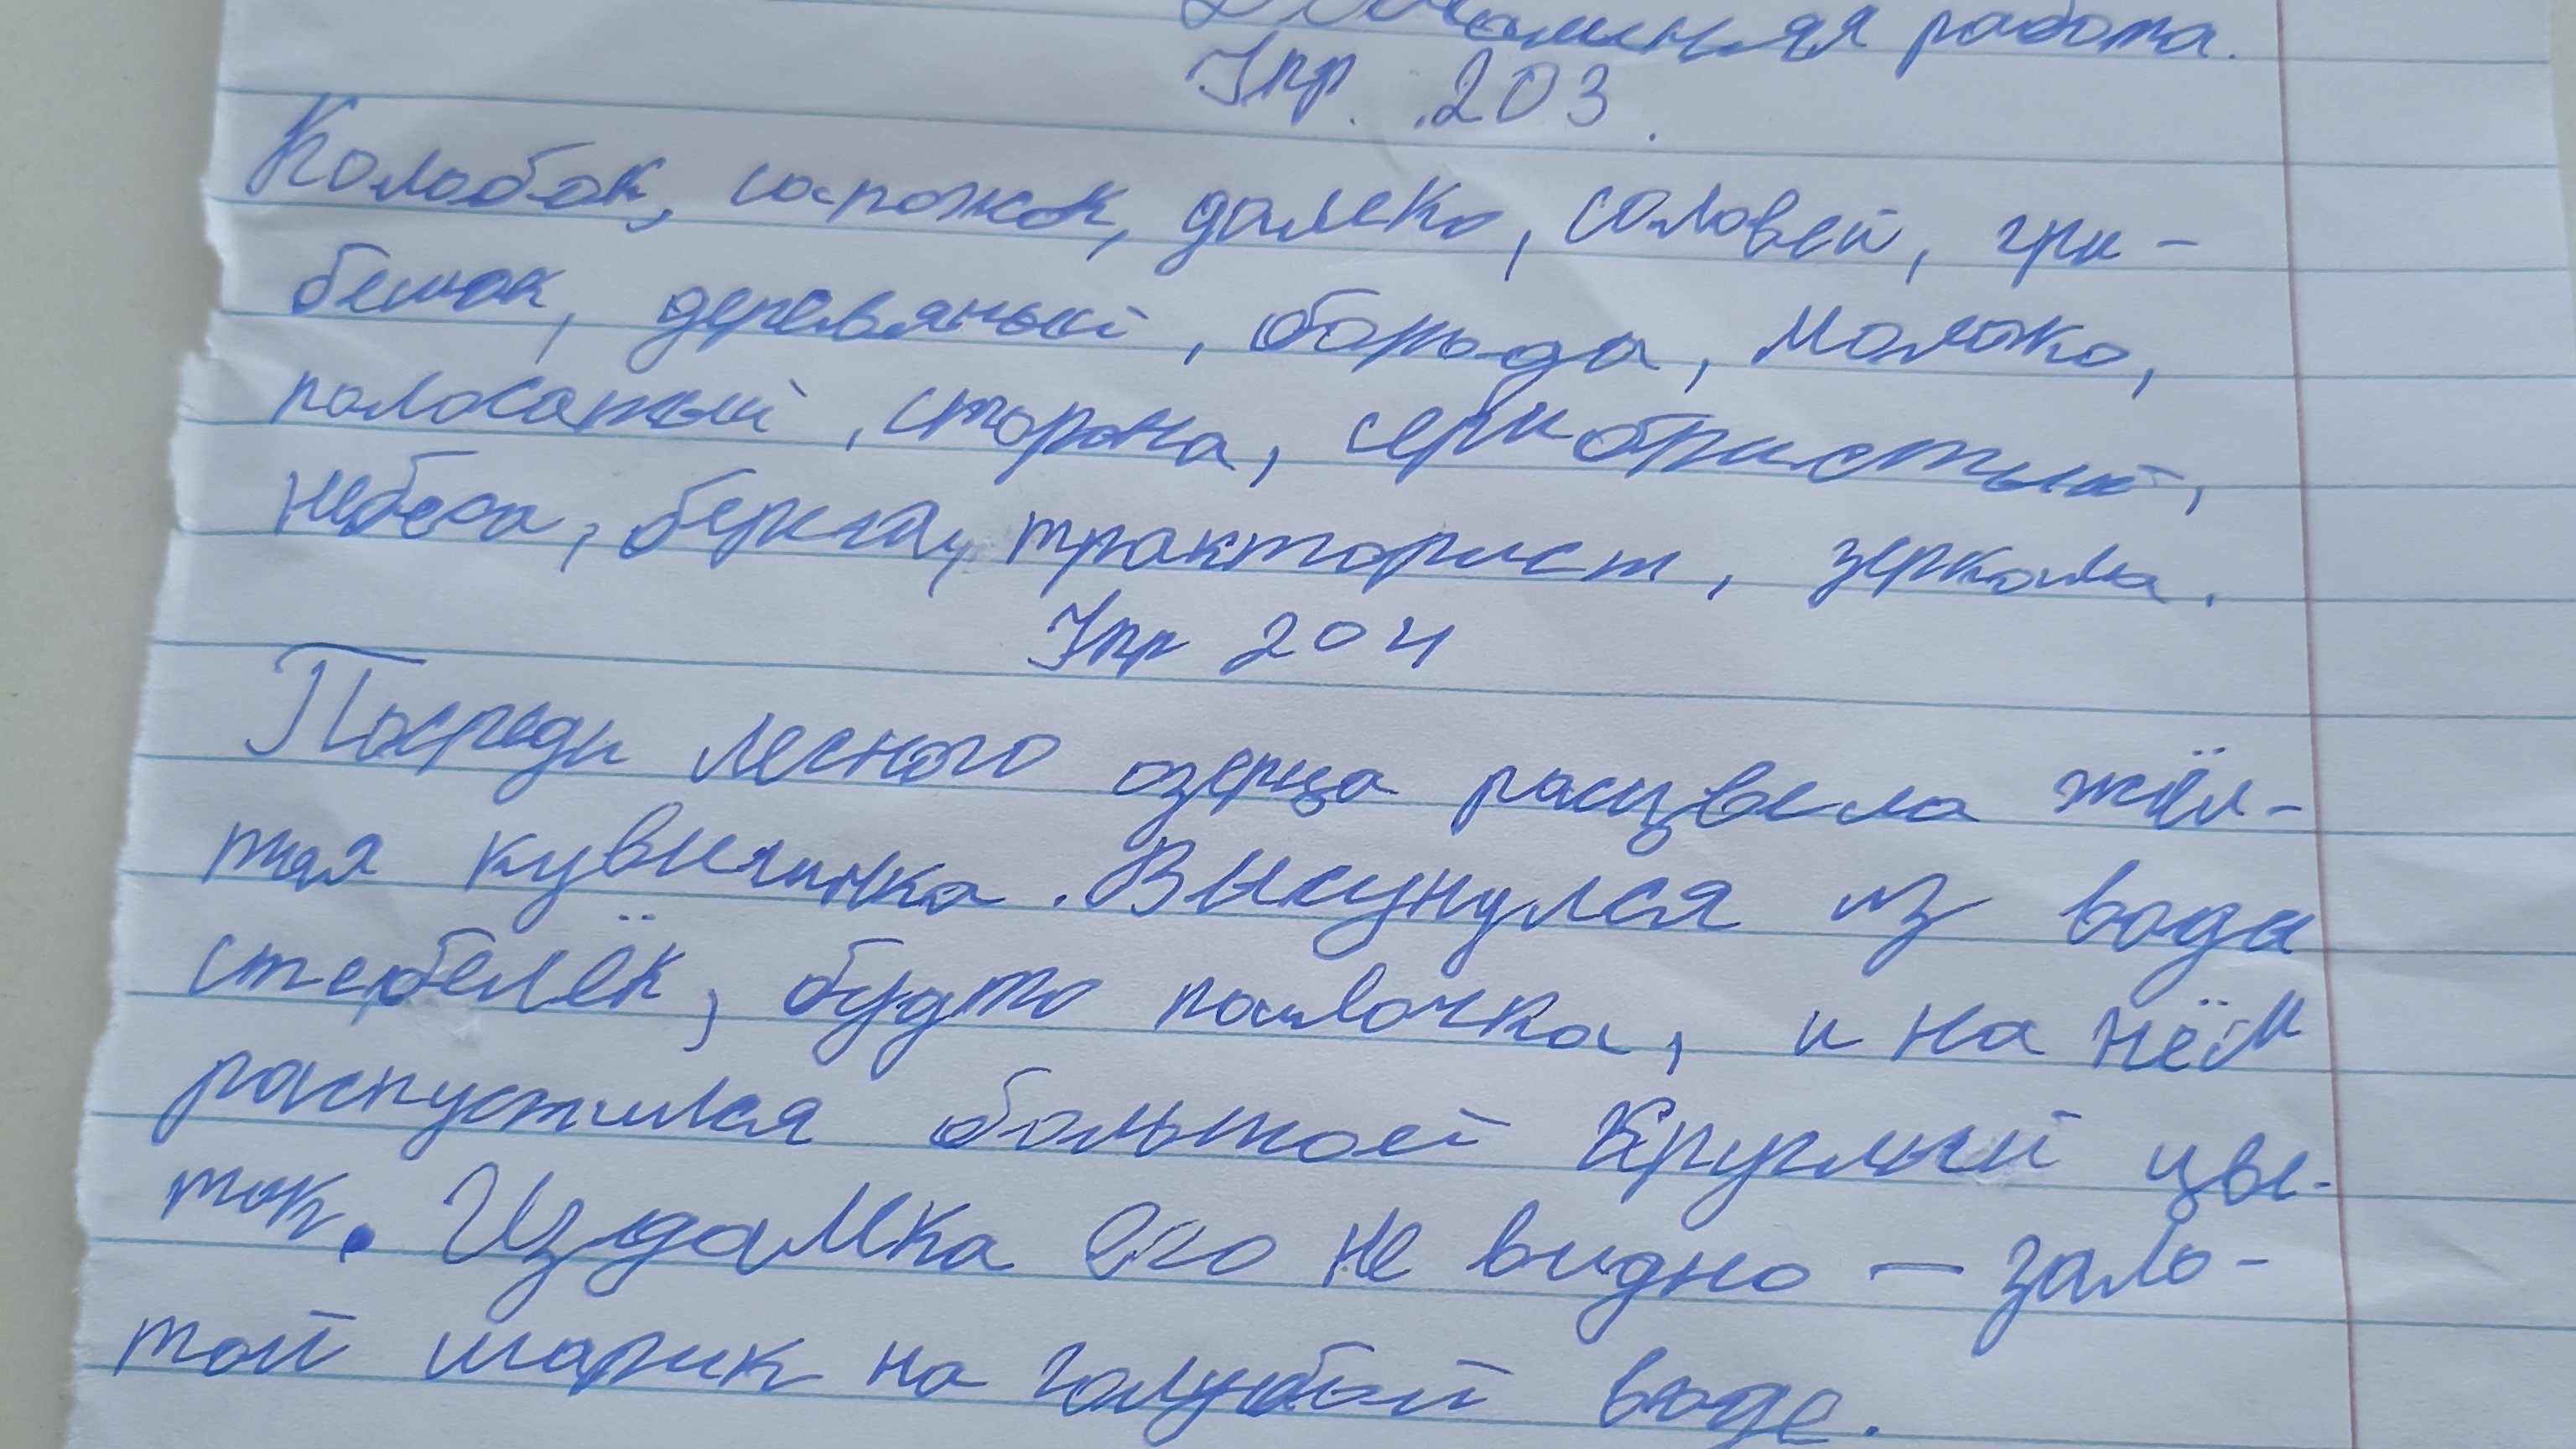 Домашняя работа.
Упр. 203.
Колобок, сапожок, далеко, соловей, гри-
бешок, деревяный, борода, молоко,
полосатый, сторона, серибристый,
небеса, берега, тракторист, зеркала.
Упр 204
Посреди лесного озерца расцвела жёл-
тая кувшинка. Высунулся из воды
стебелёк, будто палочка, и на нём
распустился большой круглый цве-
ток. Издалика его не видно — зало-
той шарик на голубой воде.